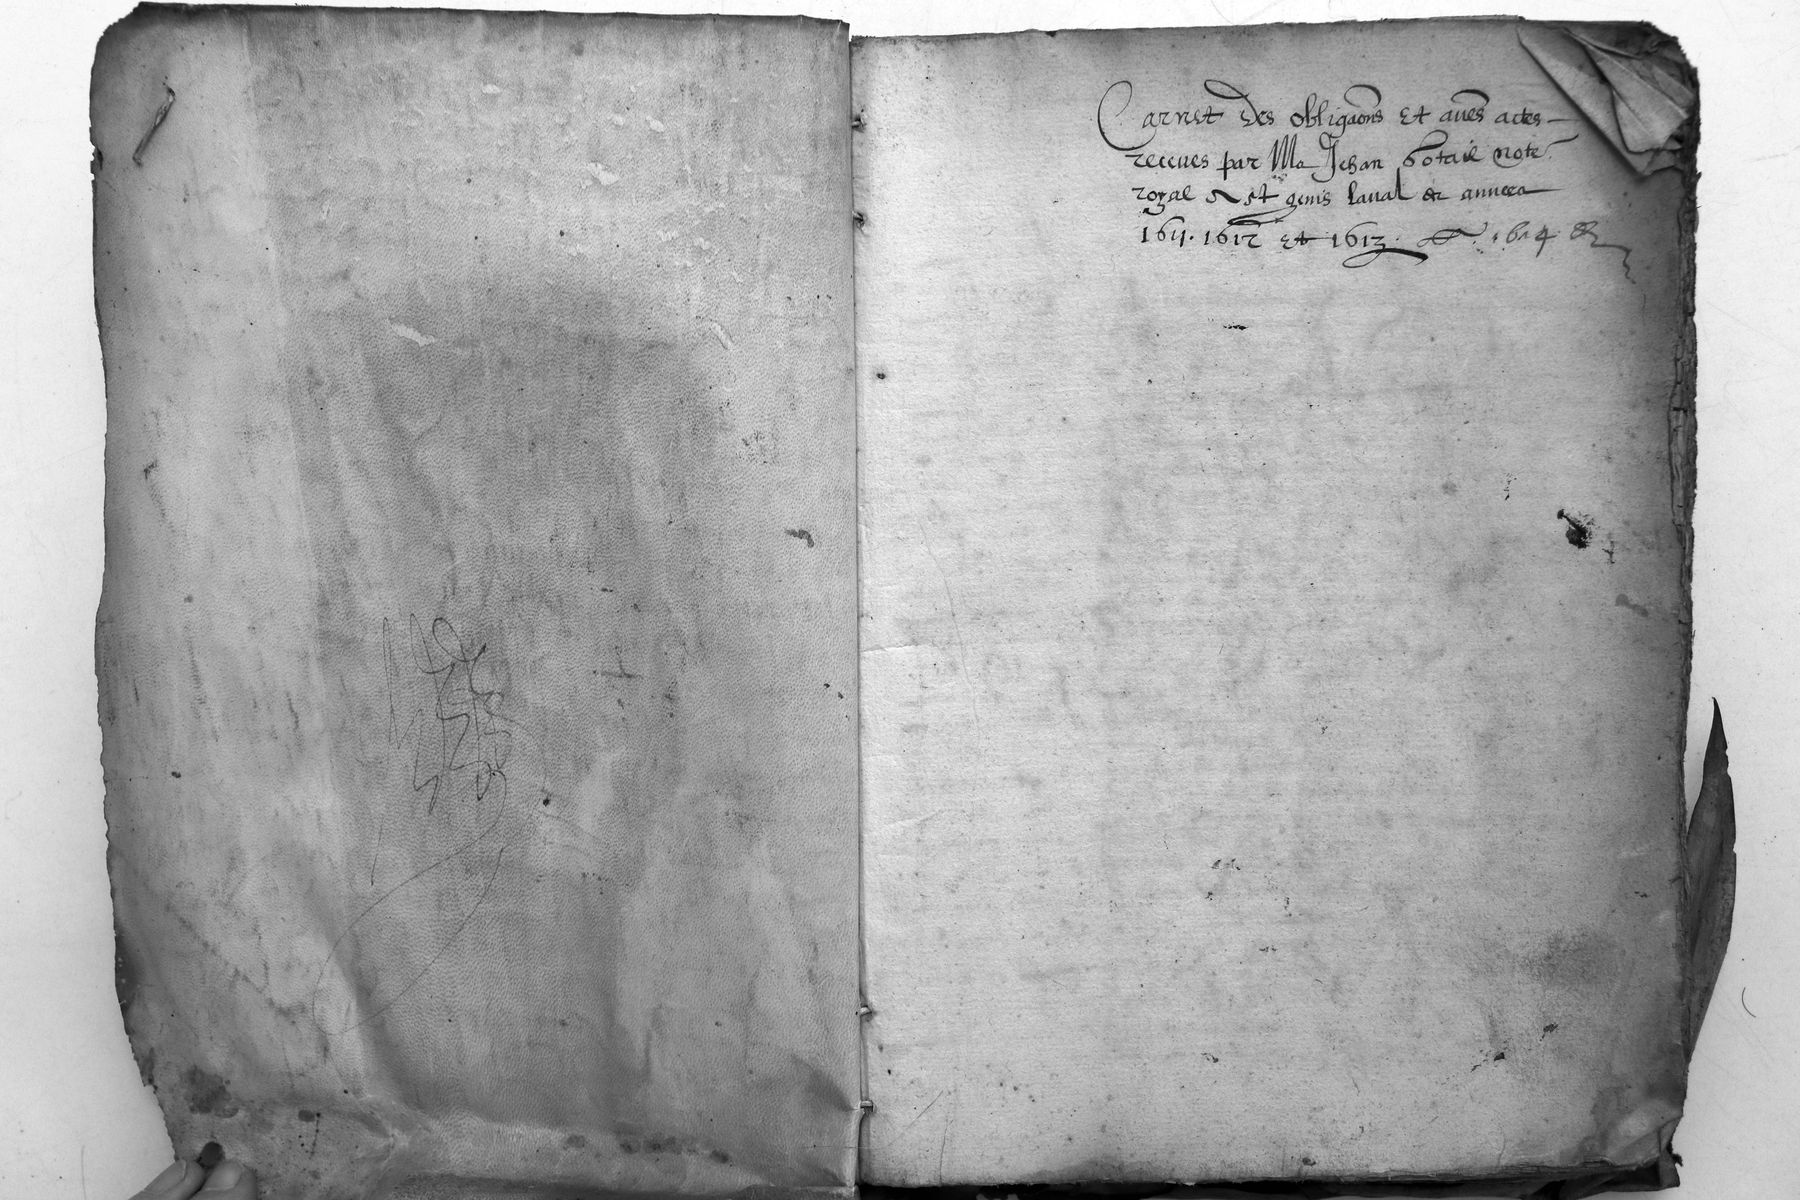 Carnet des obligaons et aues actes
receues par Me Jehan Botail note
royal A st genis Laval es annees
1611. 1612 et 1613. 1614 &